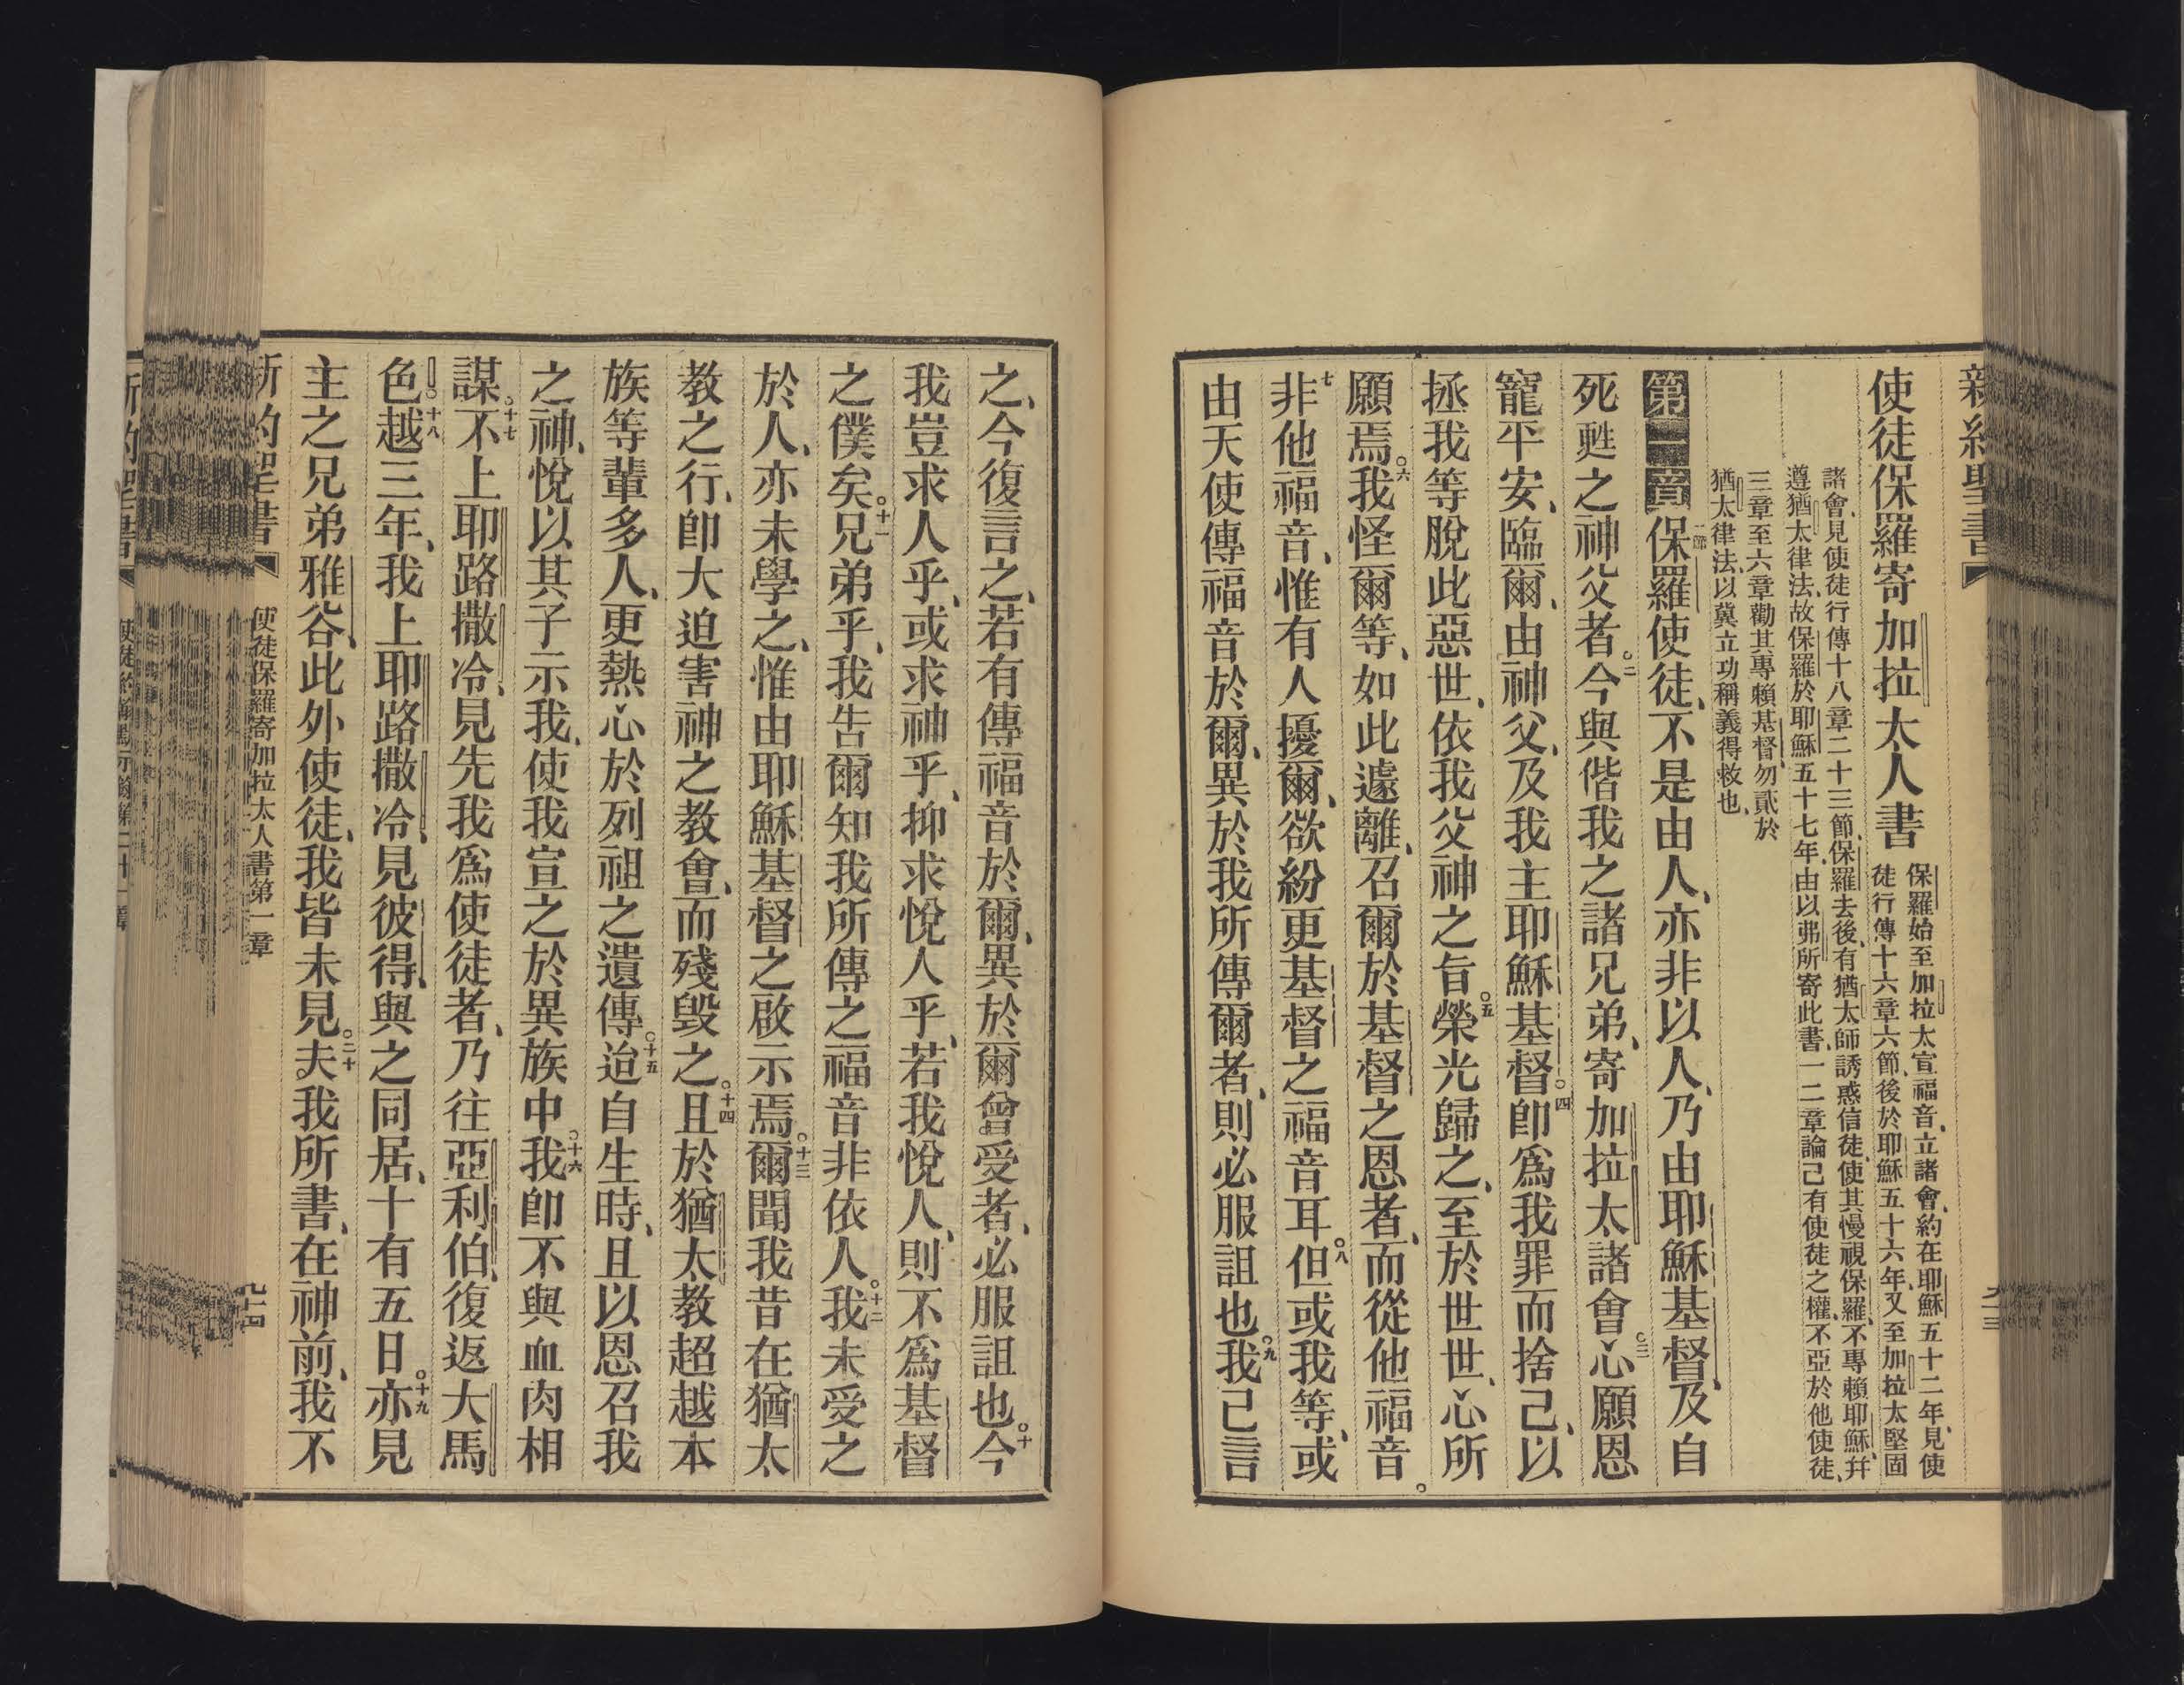 新約聖書
使徒保羅寄加拉太人書
保羅始至加拉太宣福音、立諸會、約在耶穌五十二年、見使
徒行傳十六章六節、後於耶穌五十六年、又至加拉太堅固
諸會、見使徒行傳十八章二十三節、保羅去後、有猶太師誘惑信徒、使其慢視保羅、不專賴耶穌、并
遵猶太律法、故保羅於耶穌五十七年、由以弗所寄此書、一二章論己有使徒之權、不亞於他使徒、
三章至六章勸其專賴基督、勿貳於
猶太律法、以冀立功稱義得救也、
第一章 一節保羅使徒、不是由人、亦非以人、乃由耶穌基督、及自
死甦之神父者。二今與偕我之諸兄弟、寄加拉太諸會。三心願恩
寵平安、臨爾、由神父、及我主耶穌基督。四卽爲我罪而捨己、以
拯我等脫此惡世、依我父神之旨。五榮光歸之、至於世世、心所
願焉。六我怪爾等、如此遽離、召爾於基督之恩者、而從他福音。
七非他福音、惟有人擾爾、欲紛更基督之福音耳。八但或我等、或
由天使傳福音於爾、異於我所傳爾者、則必服詛也。九我已言
之、今復言之、若有傳福音於爾、異於爾曾受者、必服詛也。十今
我豈求人乎、或求神乎、抑求悅人乎、若我悅人、則不爲基督
之僕矣。十一兄弟乎、我告爾知我所傳之福音非依人。十二我未受之
於人、亦未學之、惟由耶穌基督之啟示焉。十三爾聞我昔在猶太
教之行、卽大迫害神之教會、而殘毀之。十四且於猶太教超越本
族等輩多人、更熱心於列祖之遺傳。十五迨自生時、且以恩召我
之神、悅以其子示我、使我宣之於異族中。十六我卽不與血肉相
謀。十七不上耶路撒冷、見先我爲使徒者、乃往亞利伯、復返大馬
色。十八越三年、我上耶路撒冷、見彼得、與之同居、十有五日。十九亦見
主之兄弟雅谷、此外使徒、我皆未見。二十夫我所書、在神前、我不
新約聖書
使徒保羅寄加拉太人書第一章
九十四